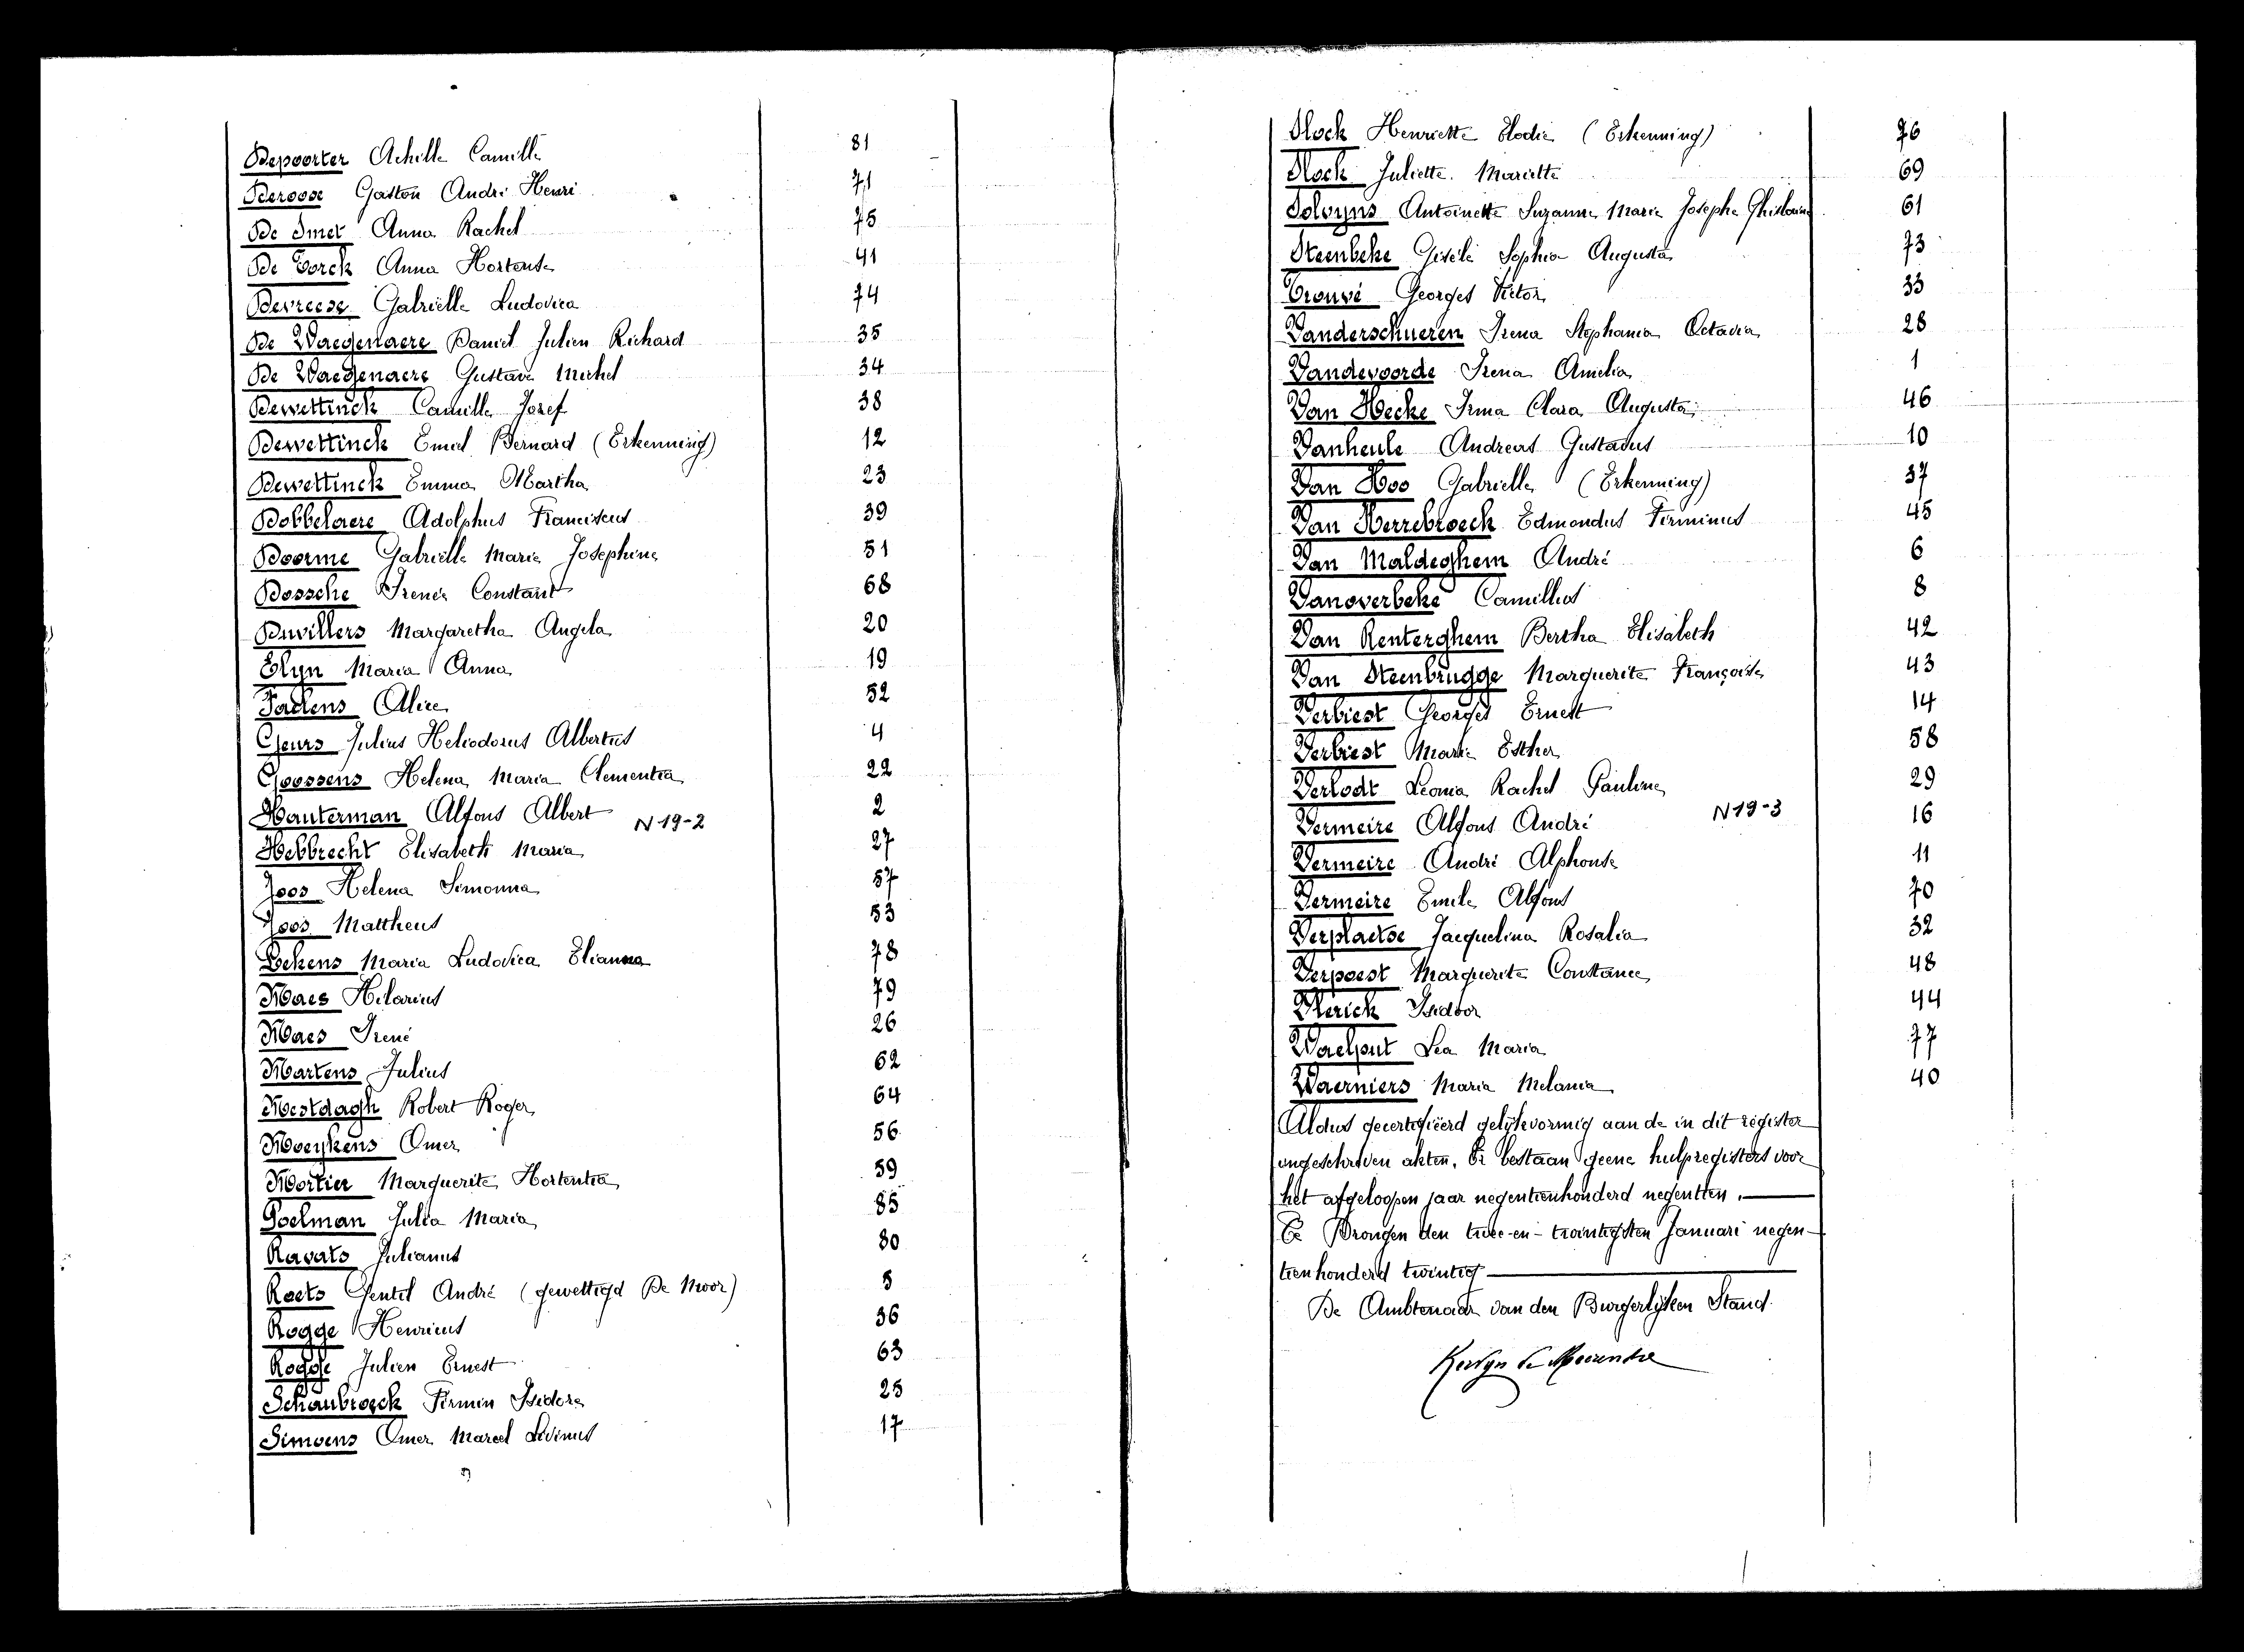 Depoorter Achille Camille 81
Deroose Gaston André Henri 71
De Smet Anna Rachel 75
De Vorck Anna Hortense 41
Devreese Gabrielle Ludovica 74
De Waegenaere Daniel Julien Richard 35
De Waegenaere Gustave Michel 34
Dewettinck Camille Jozef 38
Dewettinck Emiel Bernard (Erkenning) 12
Dewettinck Emma Martha 23
Dobbelaere Adolphus Franciscus 39
Doorme Gabrielle Marie Josephine 51
Dossche Irenée Constant 68
Duvillers Margaretha Angela 20
Elyn Maria Anna 19
Faelens Alice 52
Geurs Julius Heliodorus Albertus 4
Goossens Helena Maria Clementia 22
Hauterman Alfons Albert 2
N 19-2
Hebbrecht Elisabeth Maria 27
Joos Helena Simonna 57
Joos Mattheus 53
Lekens Maria Ludovica Elianna 78
Maes Hilarius 79
Maes Irené 26
Martens Julius 62
Mestdagh Robert Roger 64
Moeykens Omer 56
Mortier Marguerite Hortentia 59
Poelman Julia Maria 85
Ravats Julianus 80
Roets Gentil André (gewettigd De Moor) 5
Rogge Henricus 36
Rogge Julien Ernest 63
Schaubroeck Firmin Isidore 25
Simoens Omer Marcel Livinus 17
Slock Henriette Elodie (Erkenning) 76
Slock Juliette Mariette 69
Solvyns Antoinette Suzanne Marie Josephe Ghislaine 61
Steenbeke Gisèle Sophia Augusta 73
Trouvé Georges Victor 33
Vanderschueren Irena Stephania Octavia 28
Vandevoorde Irena Amelia 1
Van Hecke Irma Clara Augusta 46
Vanheule Andreas Gustavus 10
Van Hoo Gabrielle (Erkenning) 37
Van Herrebroeck Edmondus Firminus 45
Van Maldeghem André 6
Vanoverbeke Camillus 8
Van Renterghem Bertha Elisabeth 42
Van Steenbrugge Marguerite Françoise 43
Verbiest Georges Ernest 14
Verbiest Marie Esther 58
Verlodt Leonia Rachel Pauline 29
N 19-3
Vermeire Alfons André 16
Vermeire André Alphonse 11
Vermeire Emile Alfons 70
Verplaetse Jacquelina Rosalia 32
Verpoest Marguerite Constance 48
Vlerick Isidoor 44
Waelput Lea Maria 77
Waerniers Maria Melania 40
Aldus gecertifieerd gelijkvormig aan de in dit register
ingeschreven akten. Er bestaan geene hulpregisters voor
het afgeloopen jaar negentienhonderd negentien.
Te Drongen den twee-en-twintigsten Januari negen-
tienhonderd twintig
De Ambtenaar van den Burgerlijken Stand.